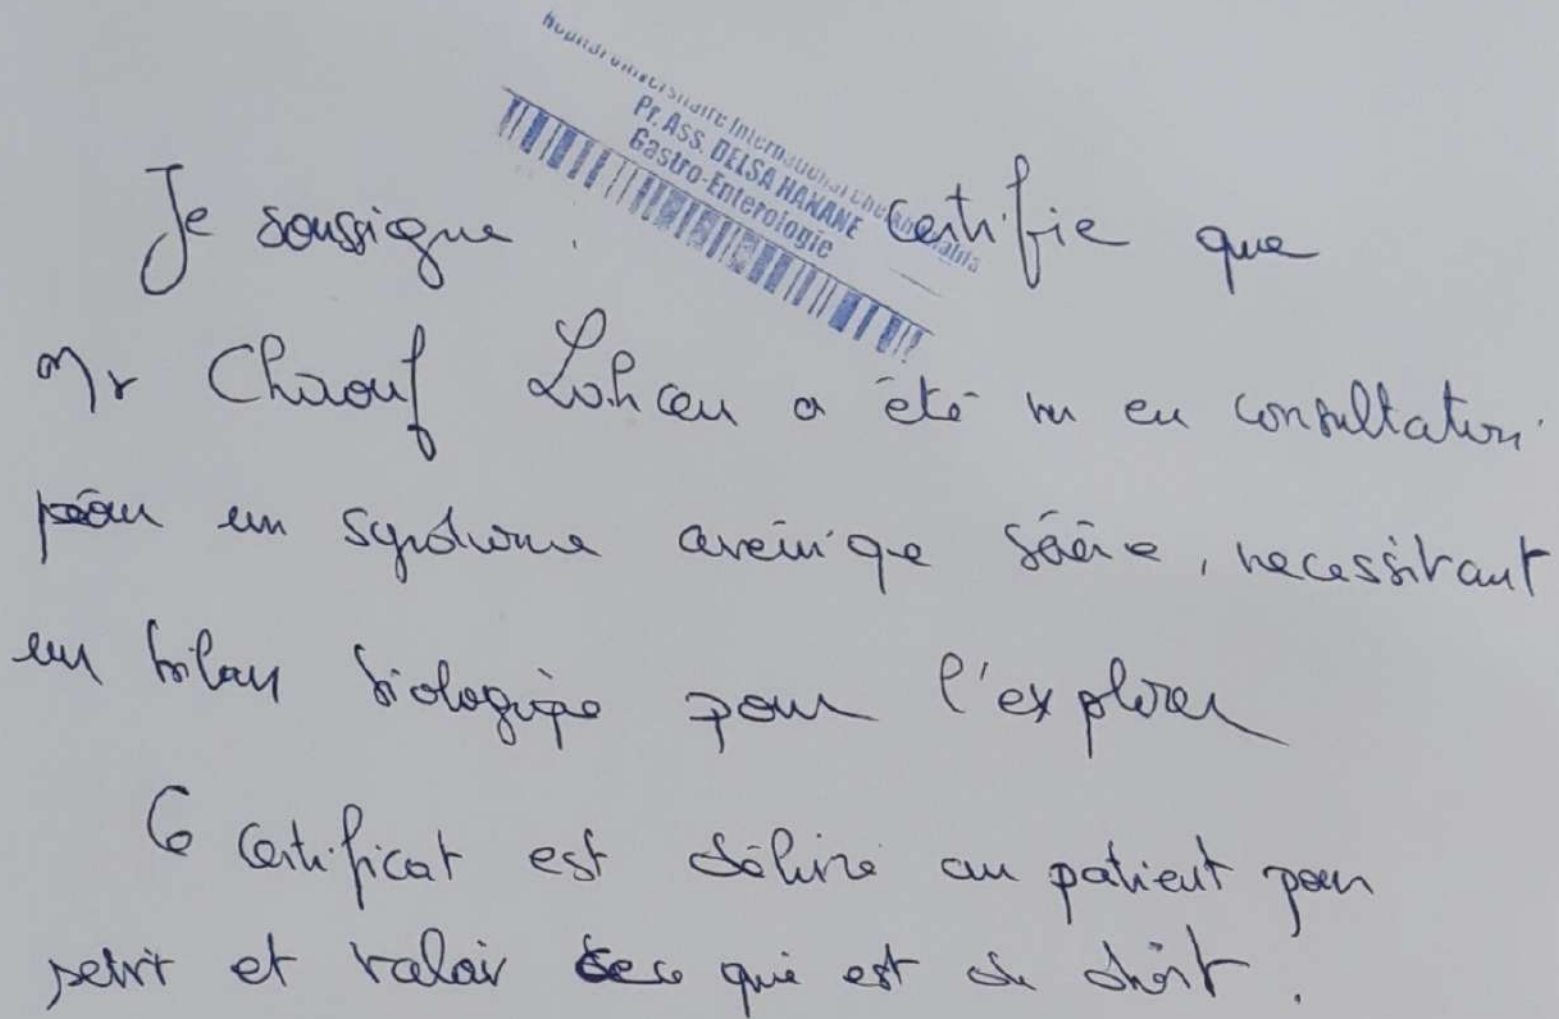 Hopital Universitaire International Cheikh Khalifa
Pr. Ass. DELSA HANANE
Gastro-Enterologie
Je soussigne certifie que
Mr Chaouf Lahcen a été vu en consultation
pour un syndrome anémique sévère, necessitant
un bilan biologique pour l'explorer
Ce certificat est délivré au patient pour
servir et valoir ce que est de droit.